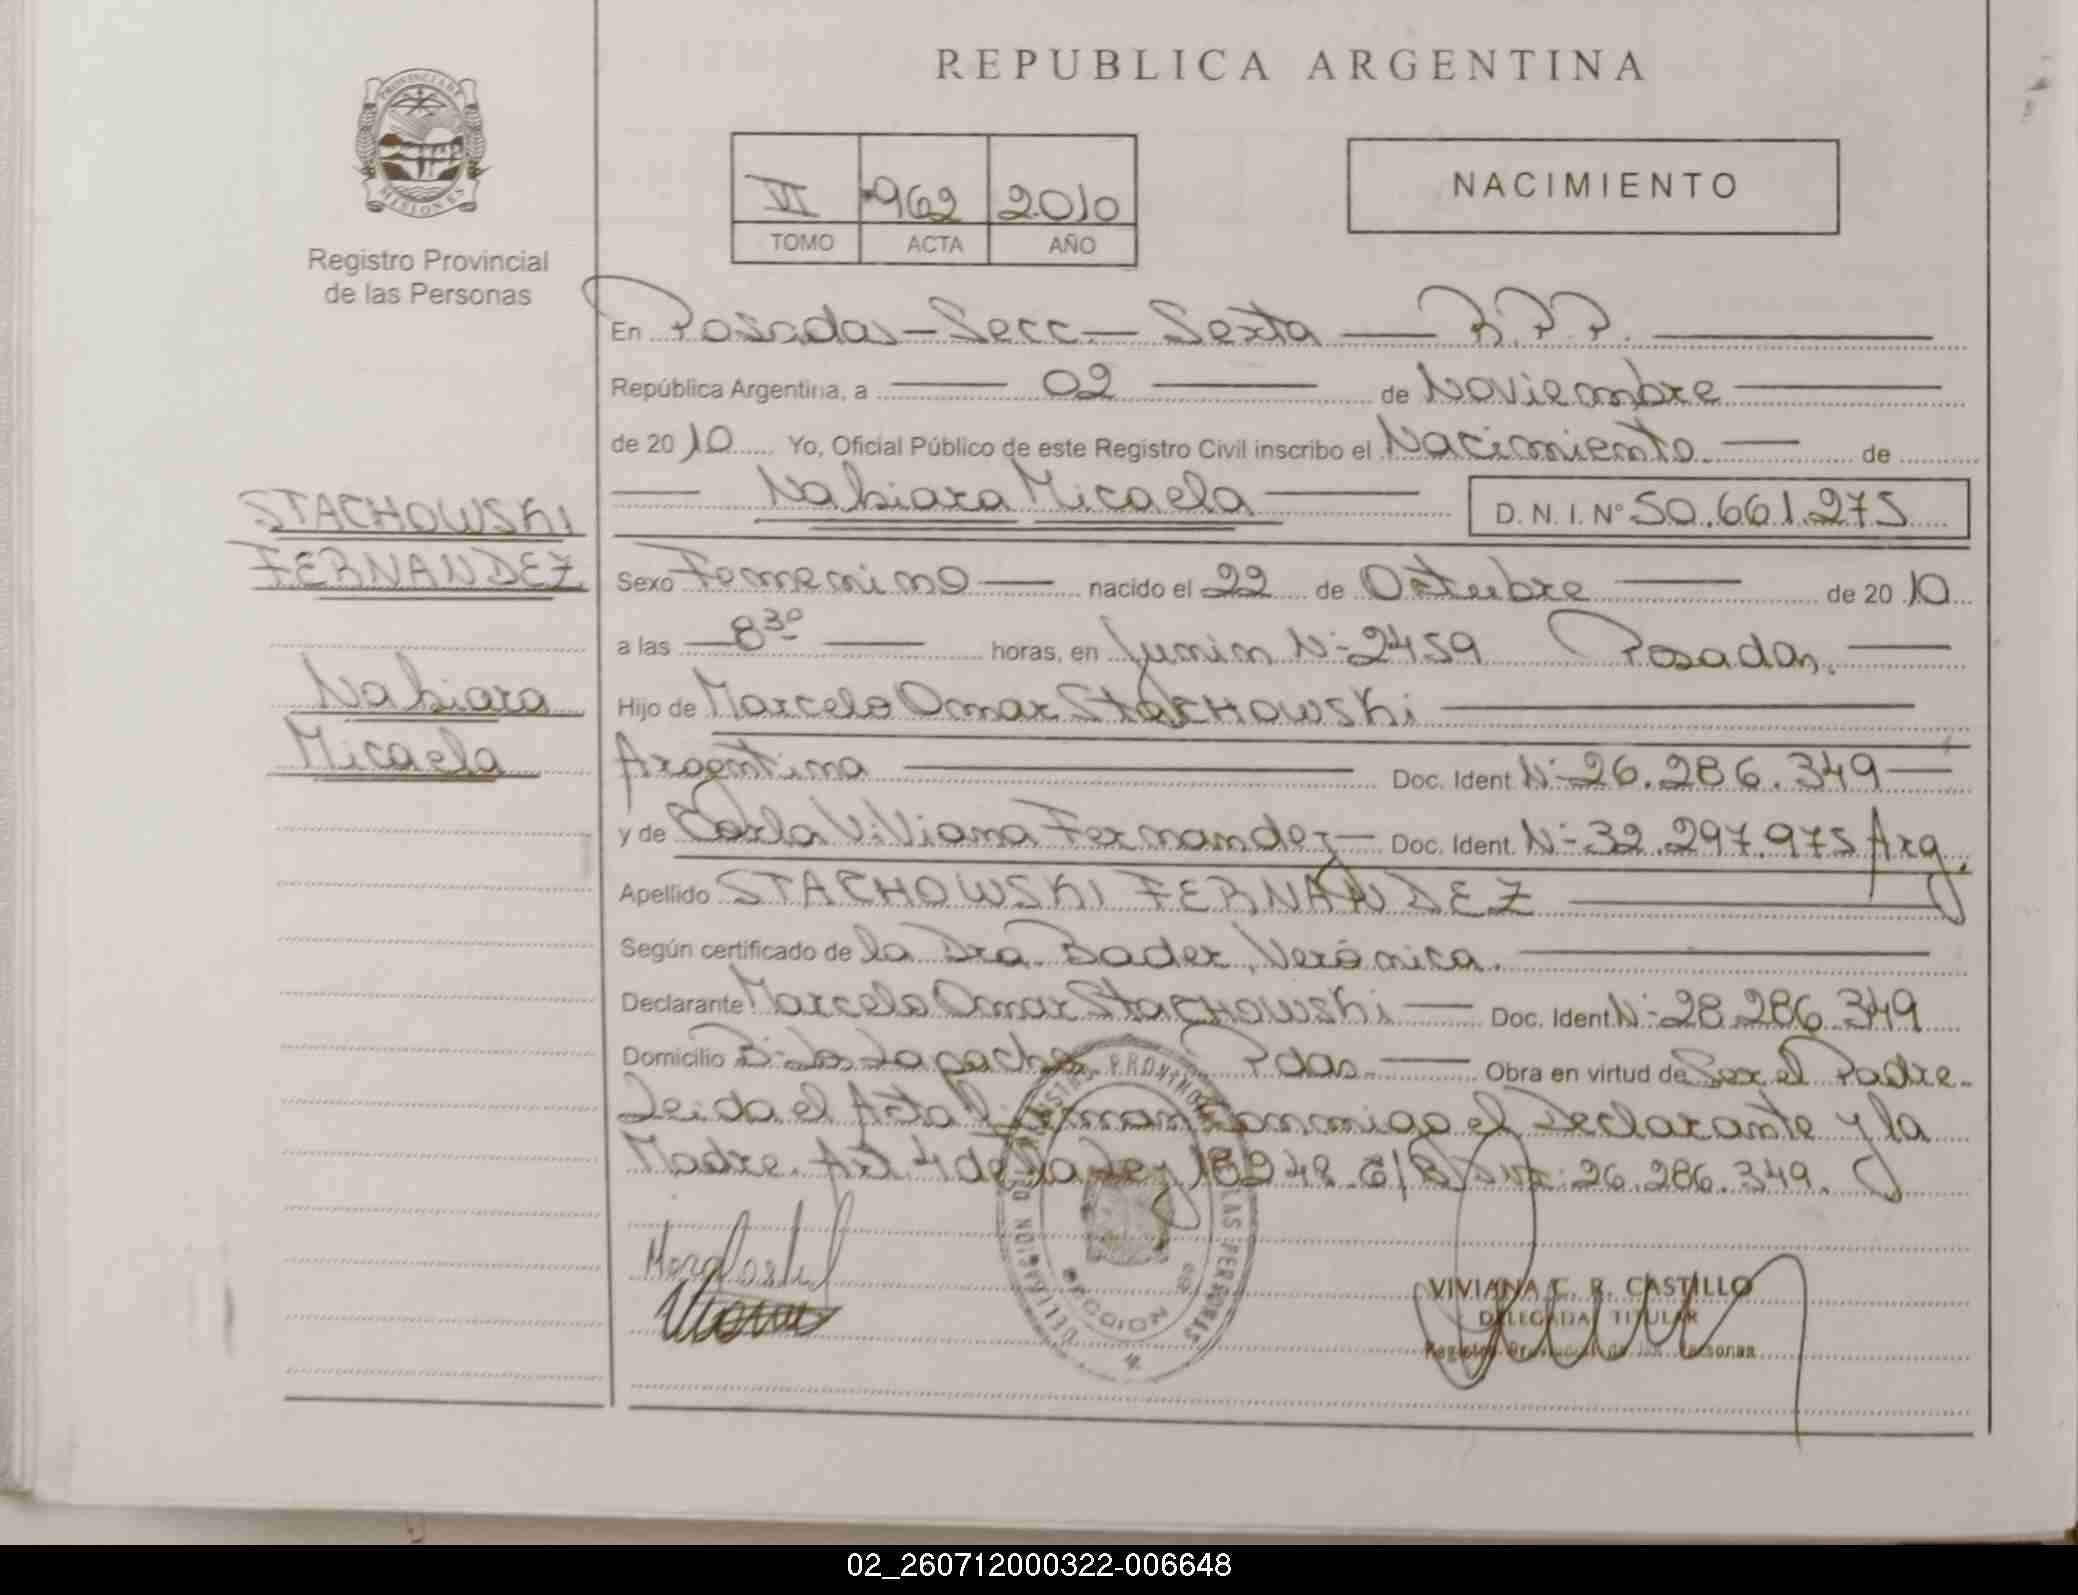 REPUBLICA ARGENTINA
PROVINCIA DE MISIONES
Registro Provincial
de las Personas
VI 962 2010
TOMO ACTA AÑO
NACIMIENTO
En Posadas - Secc - Sexta R.P.P.
República Argentina, a 02 de Noviembre
de 2010 Yo, Oficial Público de este Registro Civil inscribo el Nacimiento de
Nahiara Micaela D.N.I. Nº 50.661.275
STACHOWSKI
FERNANDEZ
Nahiara
Micaela
Sexo Femenino nacido el 22 de Octubre de 2010
a las 8 30 horas, en Junin Nº 2459 Posadas.
Hijo de Marcelo Omar Stachowski
Argentina Doc. Ident. Nº 26.286.349
y de Carla Viviana Fernandez Doc. Ident. Nº 32.297.975 Arg.
Apellido STACHOWSKI FERNANDEZ
Según certificado de la Dra. Bader, Verónica.
Declarante Marcelo Omar Stachowski Doc. Ident. Nº 28.286.349
Domicilio Bº Los Lapachos Pdas. Obra en virtud de Ser el Padre.
Leida el Acta Firman Conmigo el Declarante y la
Madre. Art 4 de la Ley 18248. 26.286.349.
VIVIANA C. R. CASTILLO
DELEGADA TITULAR
Registro Provincial de las Personas
02_260712000322-006648